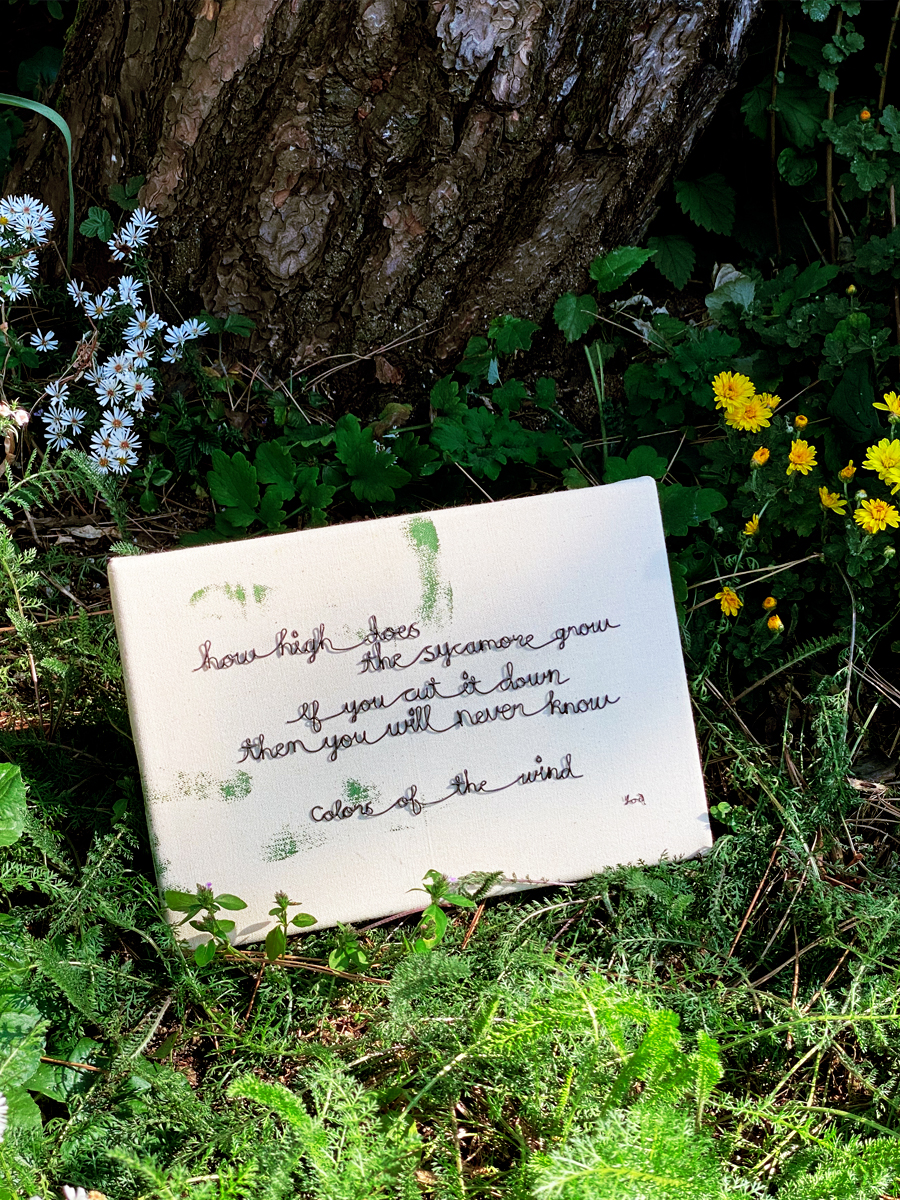 how high does
the sycamore grow
If you cut it down
then you will never know
Colors of the wind